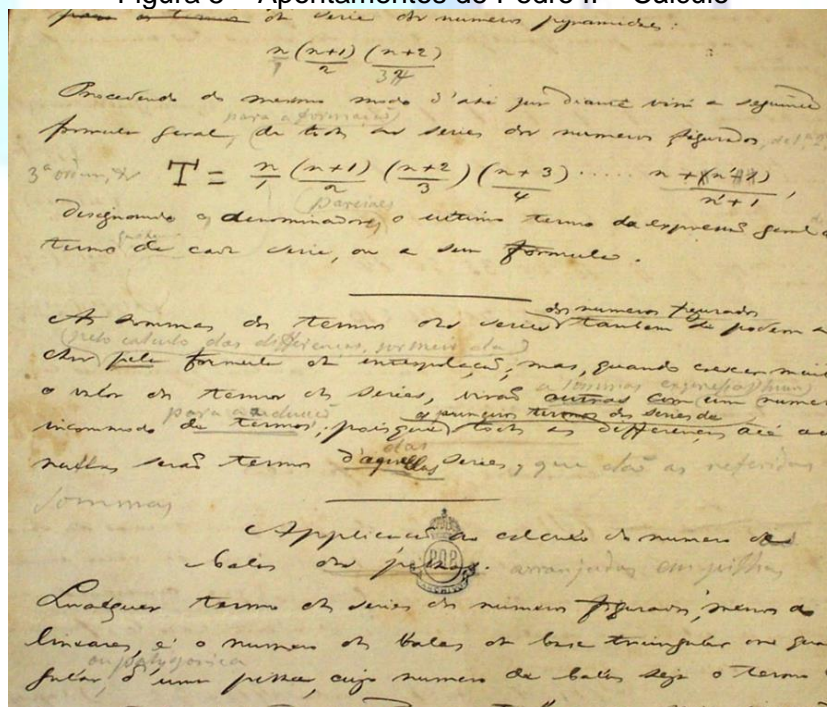 Figura 3 – Apontamentos de Pedro II – Cálculo
para os termos da serie dos numeros pyramidaes:
n/1 (n+1)/2 (n+2)/3
Procedendo do mesmo modo d'ahi por diante virá a seguinte
para a formação
formula geral, de todas as series dos numeros figurados, de 1ª, 2ª,
3ª ordem, &
T = n/1 (n+1)/2 (n+2)/3 (n+3)/4 ..... n + n' / n'+1,
Designando o denominador, o ultimo termo da expressão geral do
termo de cada serie, ou a sua formula.
dos numeros figurados
As sommas dos termos das series tambem se podem a
(pelo calculo das differenças, por meio da)
char pela formula de interpolação; mas, quando crescer muito
as sommas expressas por um
o valor dos termos das series, virão outras com um numero
para a adução
os primeiros termos das series de
incommodo de termos; pois que todas as differenças até as
das
nullas serão termos d'aquellas series, que dão as referidas
sommas
Applicação ao calculo do numero de
balas das pilhas. arranjadas em pilhas
Qualquer termo das series dos numeros figurados, menos os
lineares, é o numero de balas da base triangular ou quadran
ou polygonica
gular, d'uma pilha, cujo numero de balas seja o termo